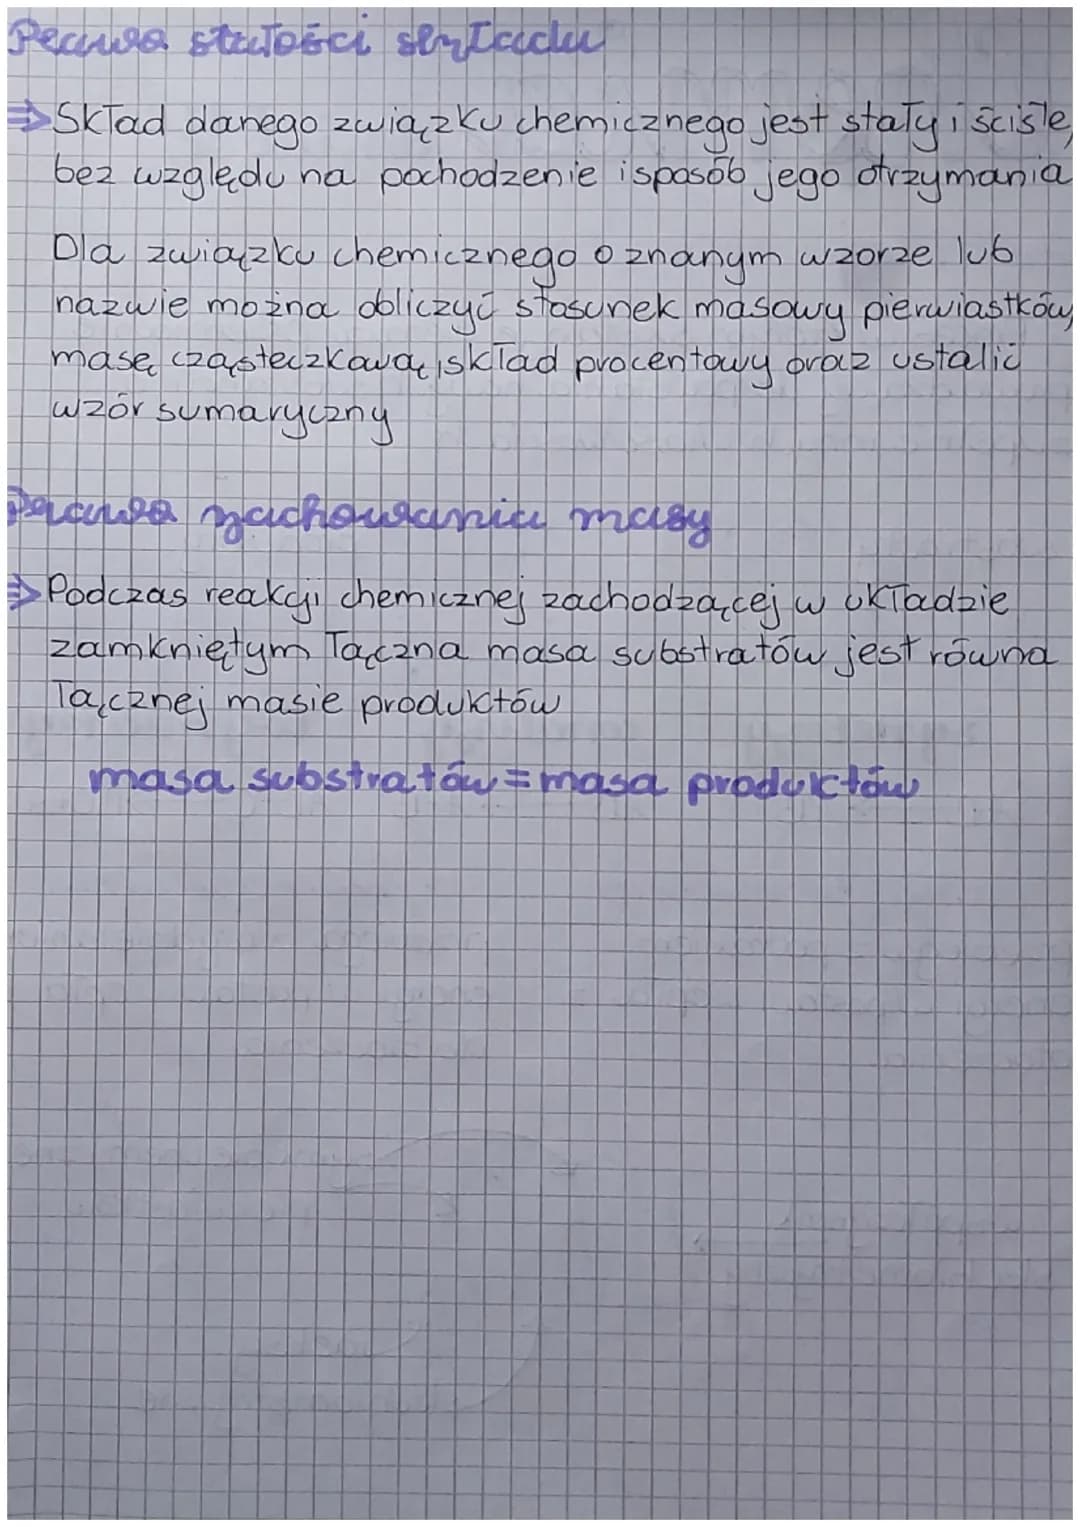 Prawo stałości składu
⇒ Skład danego związku chemicznego jest stały i ściśle,
bez względu na pochodzenie i sposób jego otrzymania
Dla związku chemicznego o znanym wzorze lub
nazwie można obliczyć stosunek masowy pierwiastków,
masę cząsteczkową, skład procentowy oraz ustalić
wzór sumaryczny
Prawo zachowania masy
⇒ Podczas reakcji chemicznej zachodzącej w układzie
zamkniętym łączna masa substratów jest równa
łącznej masie produktów
masa substratów = masa produktów